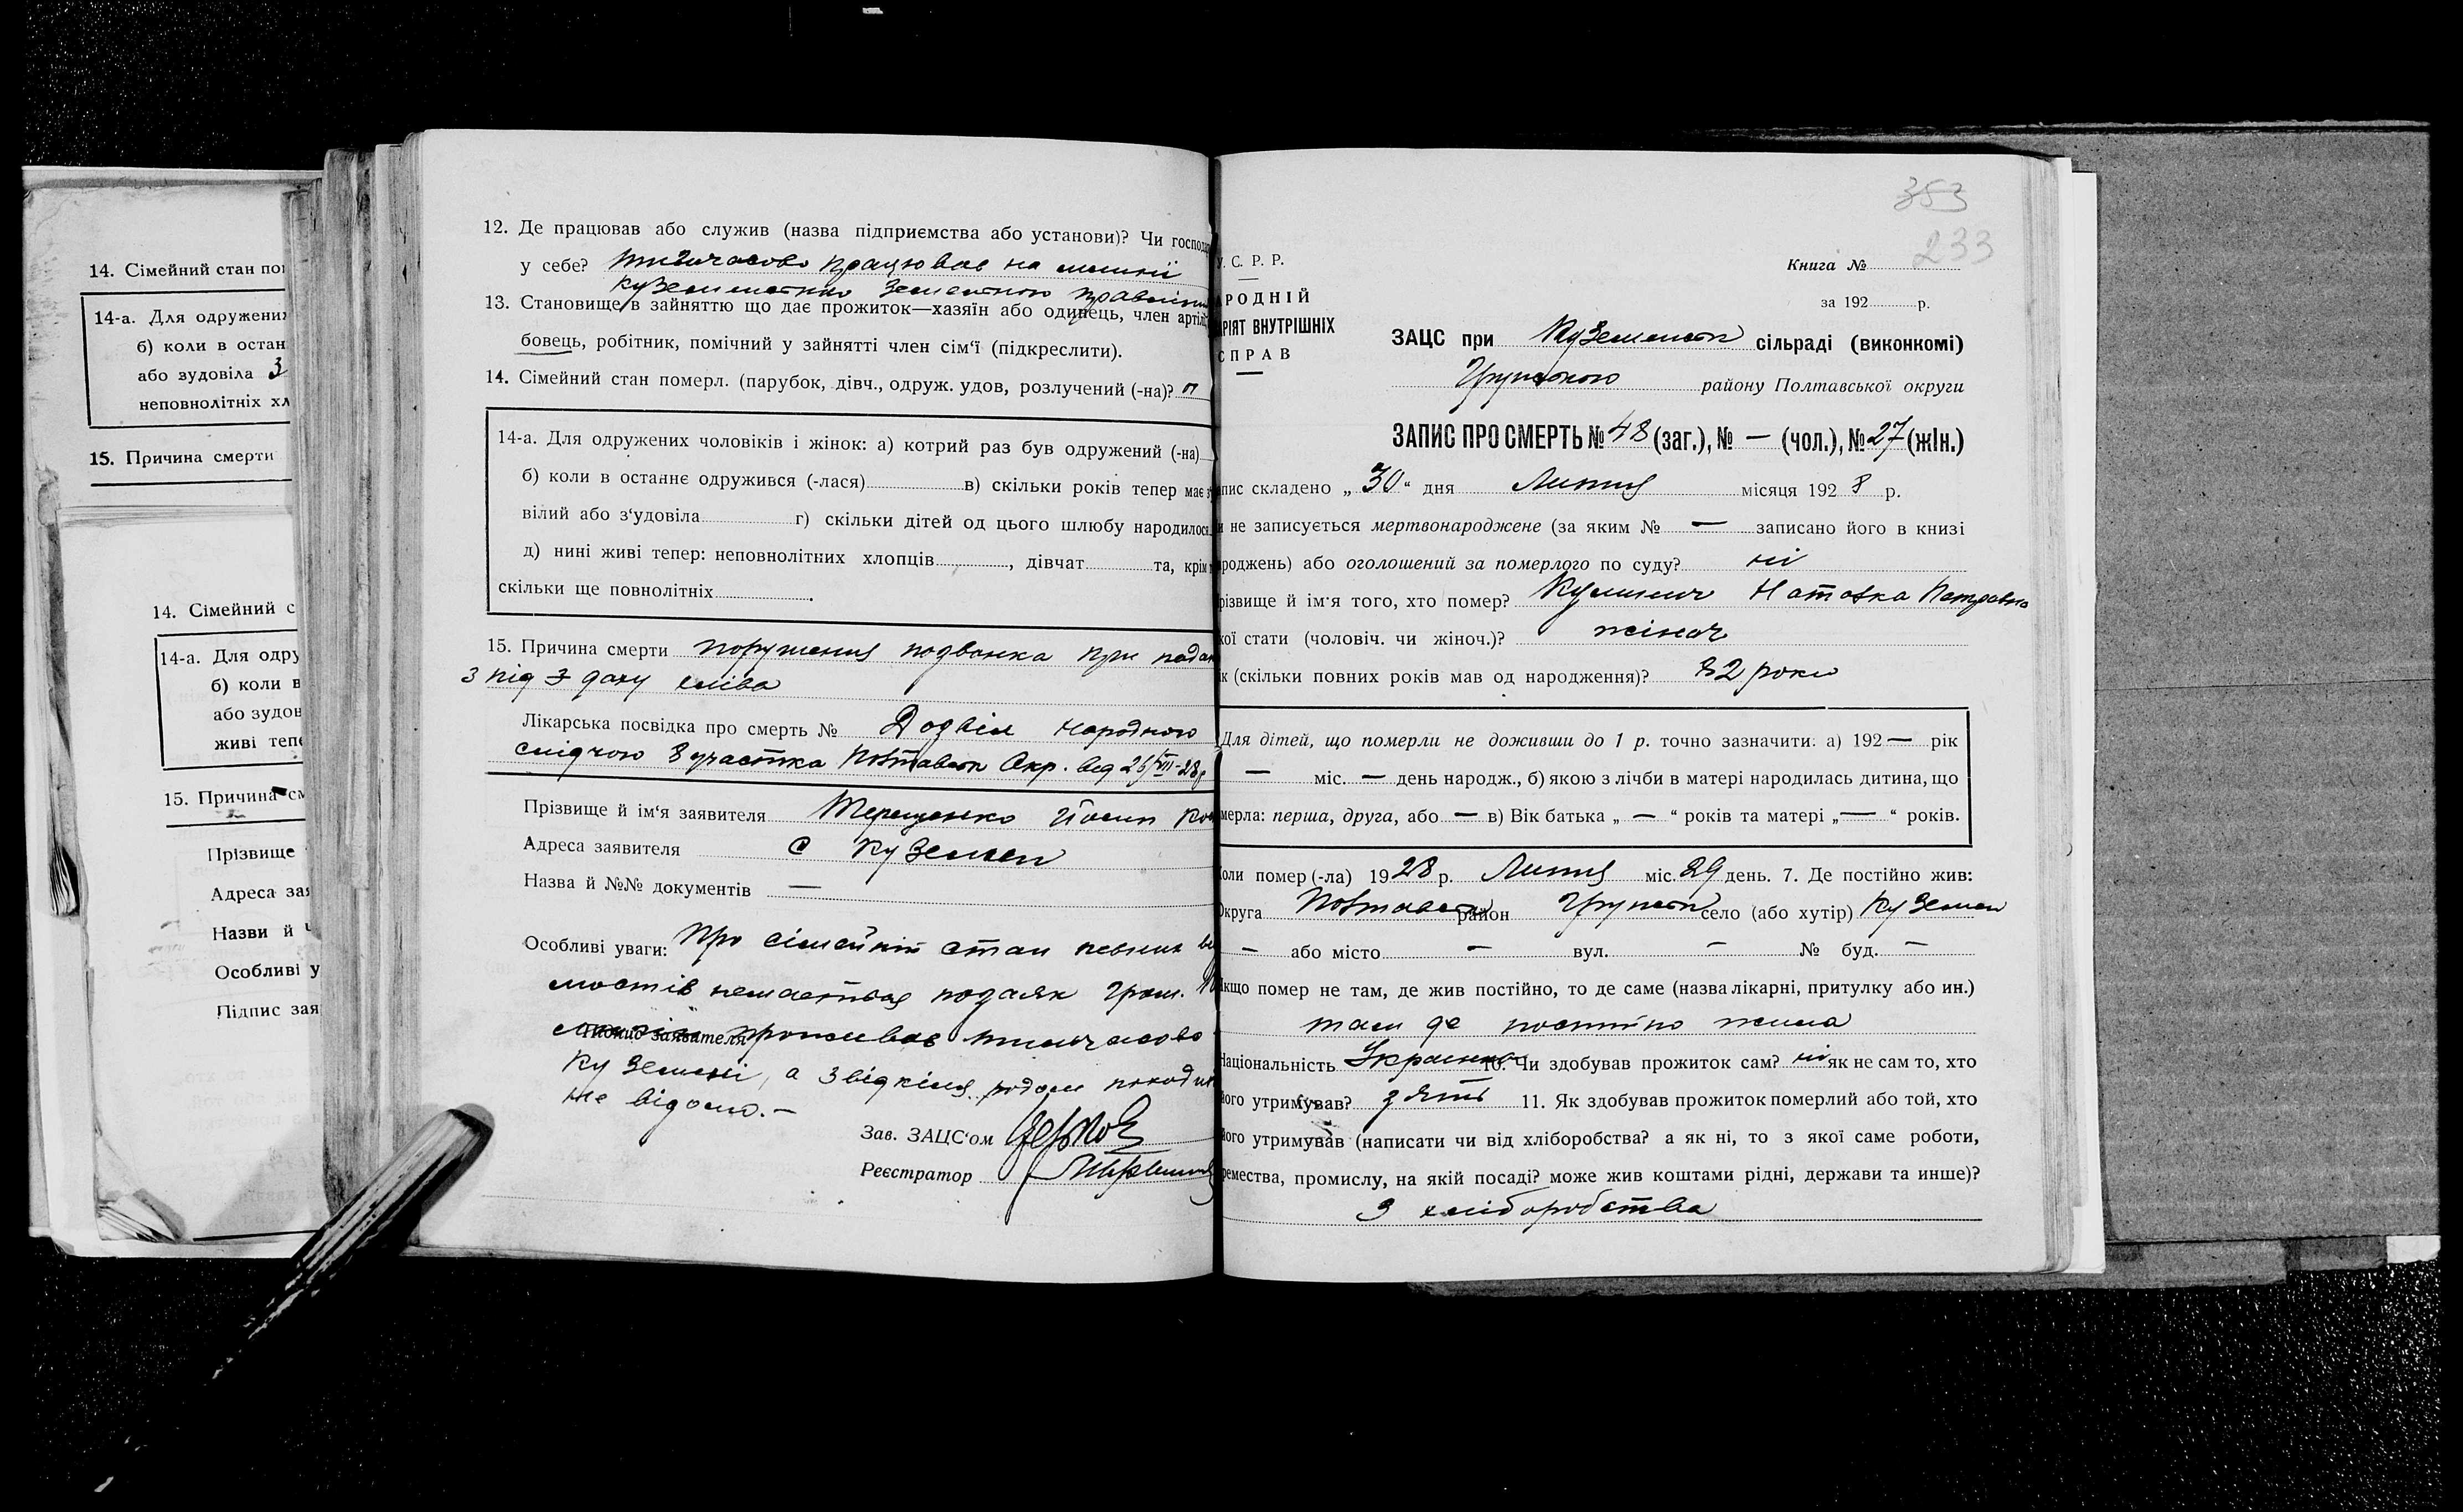 14. Сімейний стан по
14-а. Для одружени
б) коли в остан
або зудовіла З
неповнолітніх хл
15. Причина смерти
14. Сімейний с
14-а. Для одру
б) коли в
або зудов
живі тепе
15. Причина см
Прізвище
Адреса зая
Назви й
Особливі у
Підпис зая
12. Де працював або служив (назва підприємства або установи)? Чи господар
у себе? тимчасово працював на
13. Становище в зайняттю що дає прожиток—хазяїн або одинець, член артілі
бовець, робітник, помічний у зайнятті член сім'ї (підкреслити).
14. Сімейний стан померл. (парубок, дівч., одруж. удов, розлучений (-на)? п
14-а. Для одружених чоловіків і жінок: а) котрий раз був одружений (-на)
б) коли в останнє одружився (-лася) в) скільки років тепер має з
вілий або з'удовіла г) скільки дітей од цього шлюбу народилося
д) нині живі тепер: неповнолітних хлопців , дівчат та, крім
скільки ще повнолітніх .
15. Причина смерти порушения подвонка при пада
з під з даху хліва
Лікарська посвідка про смерть № Дозвіл народного
слідчого 8 участка Полтавськ Окр. від 26/VII-28р
Прізвище й ім'я заявителя Терещенко Йосип Ко
Адреса заявителя с Куземен
Назва й №№ документів —
Особливі уваги: Про сімейний стан певних ві
мостів немається подаяк гром.
Підпис заявителя проживав тимчасово
Куземені, а звідкіля родом походи
не відомо. —
Зав. ЗАЦС'ом
Реєстратор
353
233
У. С. Р. Р.
АРОДНІЙ
АРІЯТ ВНУТРІШНІХ
СПРАВ
Книга №
за 192 р.
ЗАЦС при Куземенськ сільраді (виконкомі)
Грунського району Полтавської округи
ЗАПИС ПРО СМЕРТЬ № 48 (заг.), № — (чол.), № 27 (жін.)
пис складено „ 30 “ дня Липня місяця 192 8 р.
и не записується мертвонароджене (за яким № — записано його в книзі
роджень) або оголошений за померлого по суду? ні
різвище й ім'я того, хто помер? Наталка Петровна
кої стати (чоловіч. чи жіноч.)? жіноч
ік (скільки повних років мав од народження)? 82 роки
Для дітей, що померли не доживши до 1 р. точно зазначити: а) 192 — рік
— міс. — день народж., б) якою з лічби в матері народилась дитина, що
мерла: перша, друга, або — в) Вік батька „ — “ років та матері „ — “ років.
Коли помер (-ла) 19 28 р. Липня міс. 29 день. 7. Де постійно жив:
Округа Полтавськ район Грунськ село (або хутір) Куземен
— або місто — вул. — № буд. —
Якщо помер не там, де жив постійно, то де саме (назва лікарні, притулку або ин.)
там де постійно жила
Національність Українка 10. Чи здобував прожиток сам? ні як не сам то, хто
його утримував? зять 11. Як здобував прожиток померлий або той, хто
його утримував (написати чи від хліборобства? а як ні, то з якої саме роботи,
ремества, промислу, на якій посаді? може жив коштами рідні, держави та инше)?
З хліборобства